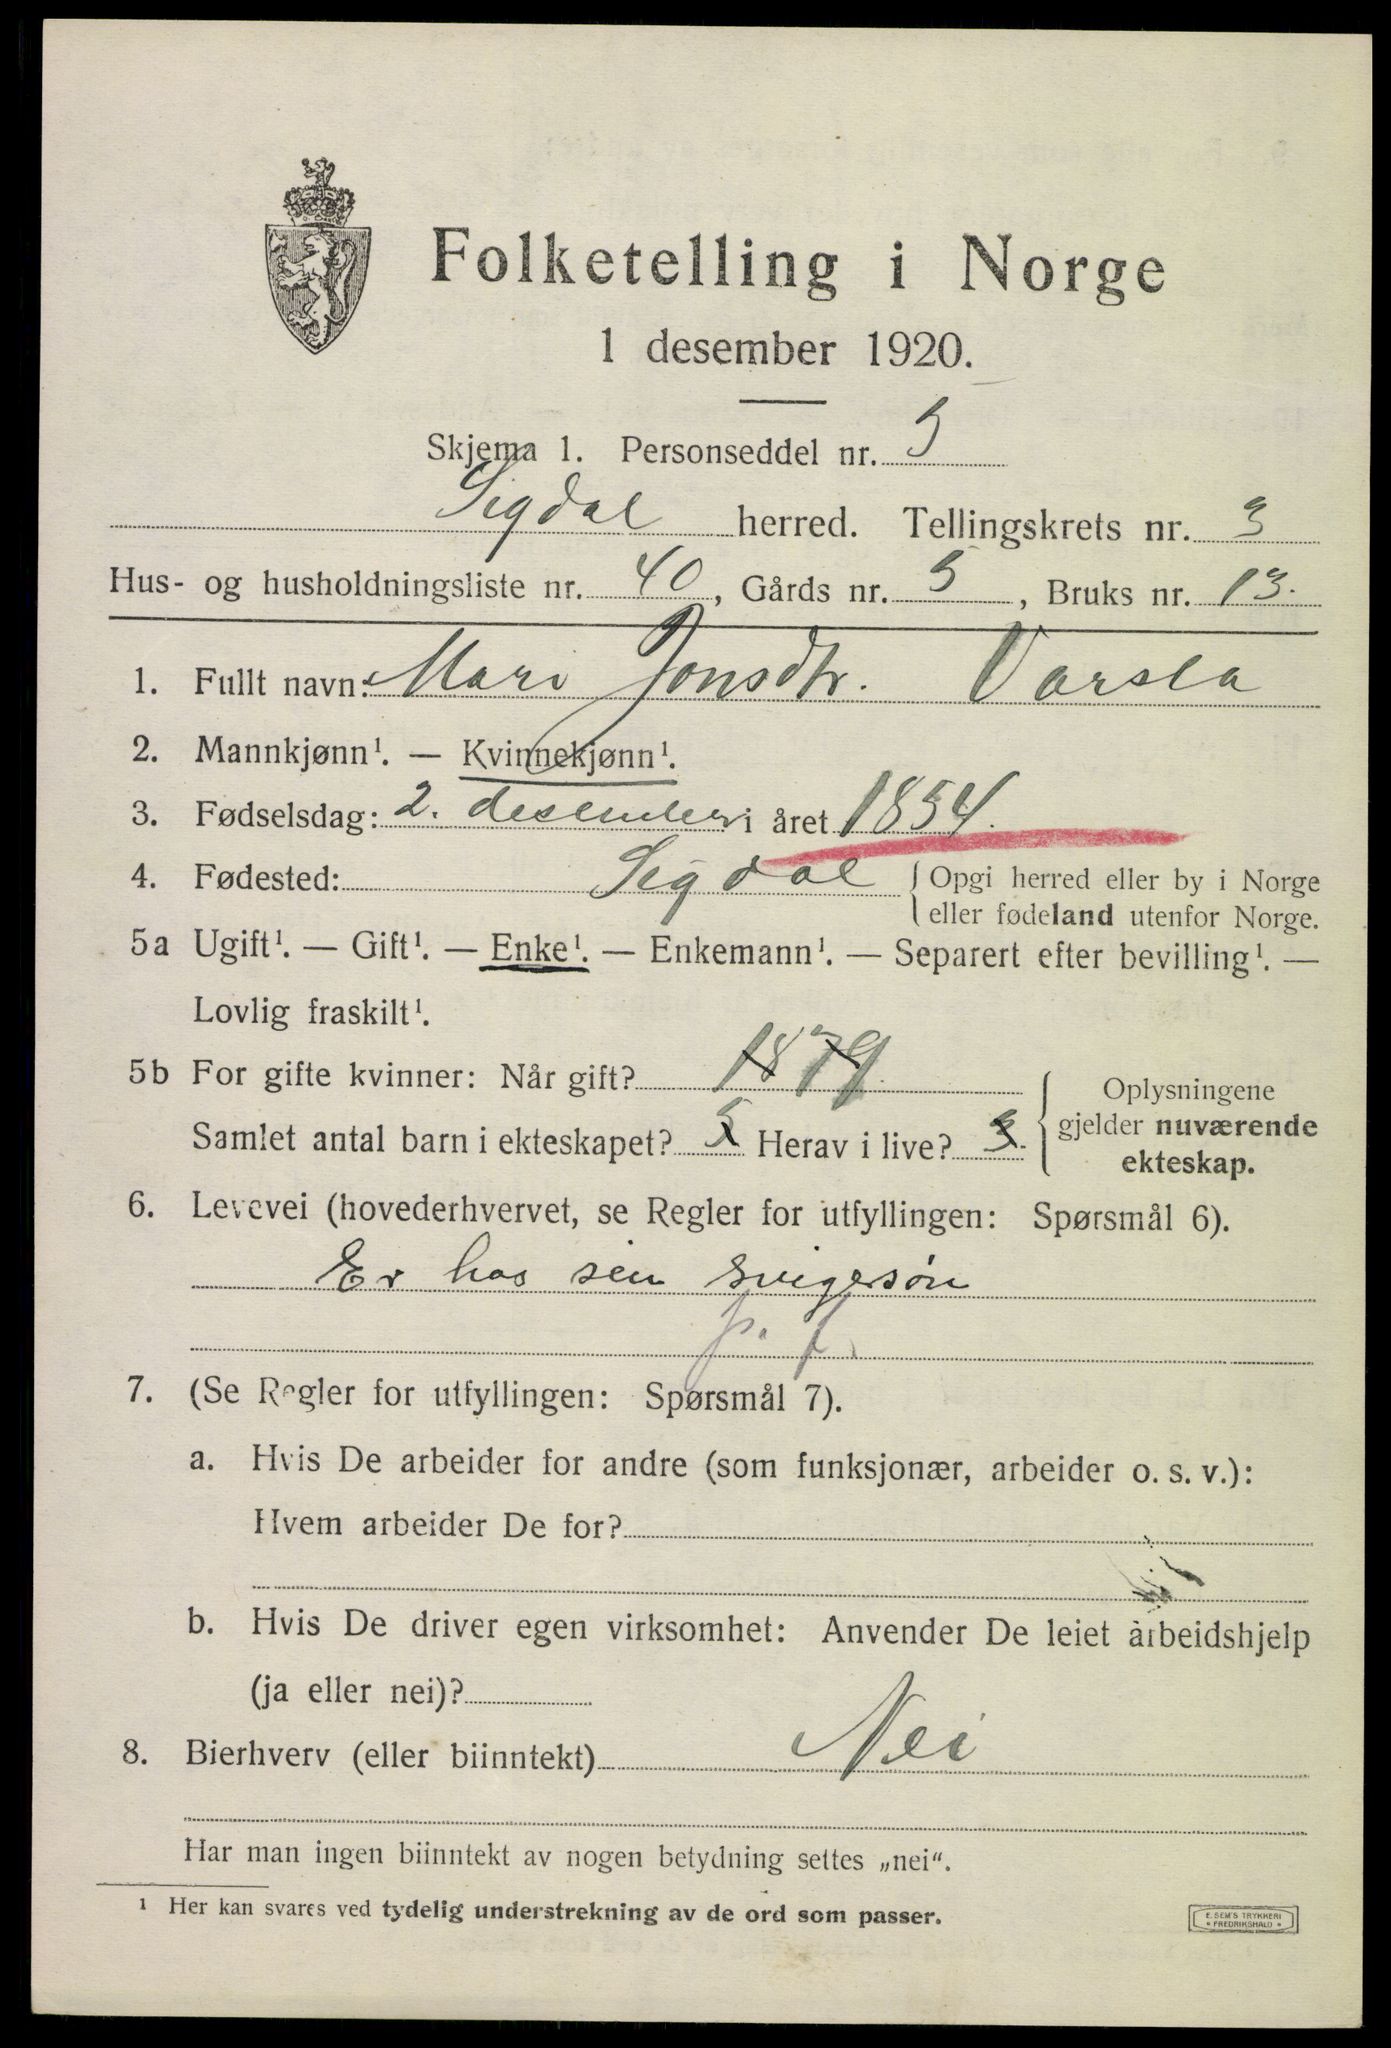 Folketelling i Norge
1 desember 1920.
Skjema 1. Personseddel nr. 5
Sigdal herred. Tellingskrets nr. 3
Hus- og husholdningsliste nr. 40, Gårds nr. 5, Bruks nr. 13.
1. Fullt navn: Mari Jonsdtr. Varsla
2. Mannkjønn¹. — Kvinnekjønn¹.
3. Fødselsdag: 2. desember i året 1854.
4. Fødested: Sigdal { Opgi herred eller by i Norge
eller fødeland utenfor Norge.
5a Ugift¹. — Gift¹. — Enke¹. — Enkemann¹. — Separert efter bevilling¹. —
Lovlig fraskilt¹.
5b For gifte kvinner: Når gift? 1879.
Samlet antal barn i ekteskapet? 5 Herav i live? 3.
Oplysningene
gjelder nuværende
ekteskap.
6. Levevei (hovederhvervet, se Regler for utfyllingen: Spørsmål 6).
Er hos sin svigersøn
p. f.
7. (Se Regler for utfyllingen: Spørsmål 7).
a. Hvis De arbeider for andre (som funksjonær, arbeider o. s. v.):
Hvem arbeider De for?
b. Hvis De driver egen virksomhet: Anvender De leiet arbeidshjelp
(ja eller nei)?
8. Bierhverv (eller biinntekt) Nei
Har man ingen biinntekt av nogen betydning settes „nei“.
¹ Her kan svares ved tydelig understrekning av de ord som passer.
E. SEM'S TRYKKERI
• FREDRIKSHALD •